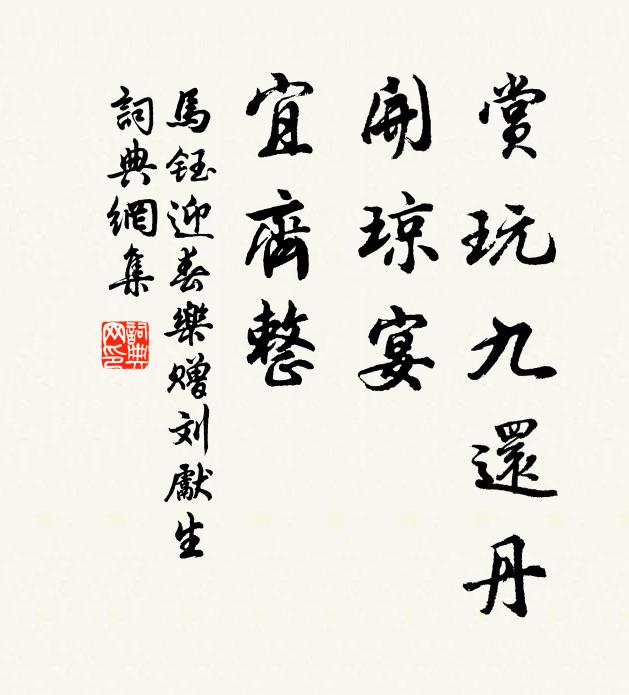 賞玩九還丹
開瓊宴
宜齊整
馬鈺迎春樂贈刘獻生
詞典網集
詞典網印